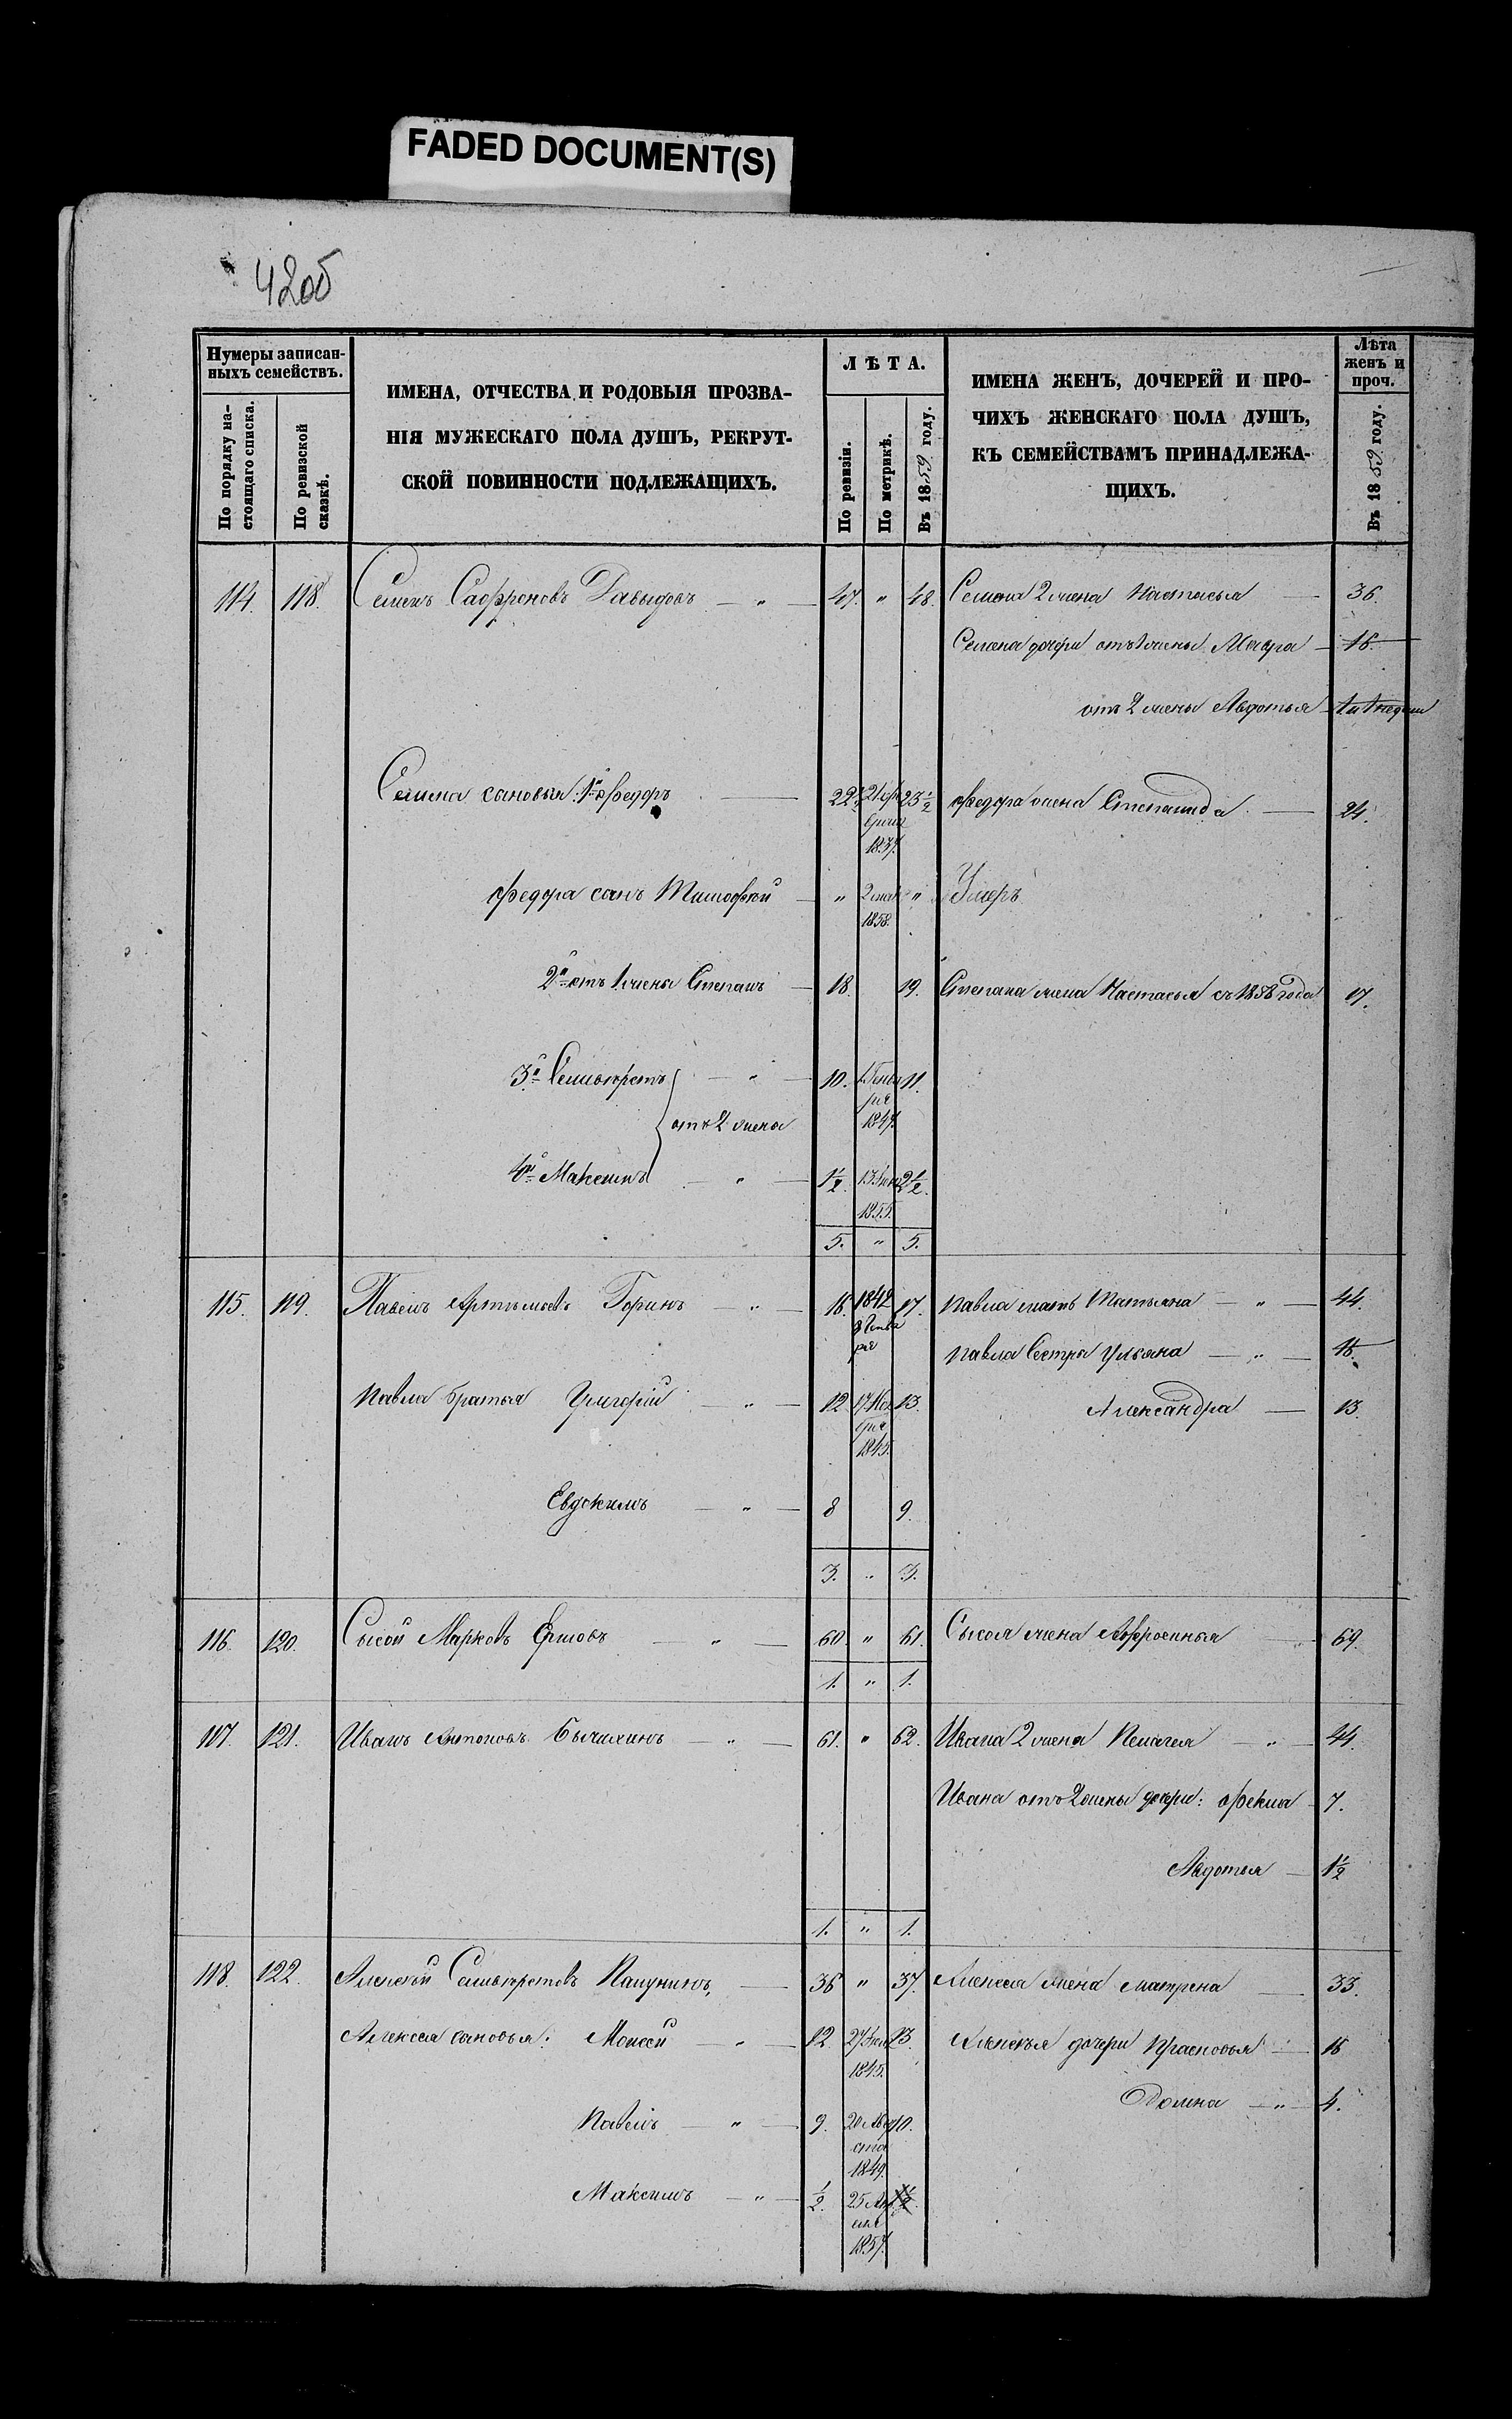 FADED DOCUMENT(S)
42об
Нумеры записан-
ныхъ семействъ.
По порядку на-
стоящаго списка.
По ревизской
сказкѣ.
ИМЕНА, ОТЧЕСТВА И РОДОВЫЯ ПРОЗВА-
НІЯ МУЖЕСКАГО ПОЛА ДУШЪ, РЕКРУТ-
СКОЙ ПОВИННОСТИ ПОДЛЕЖАЩИХЪ.
ЛѢТА.
По ревизіи.
По метрикѣ.
Въ 1859 году.
ИМЕНА ЖЕНЪ, ДОЧЕРЕЙ И ПРО-
ЧИХЪ ЖЕНСКАГО ПОЛА ДУШЪ,
КЪ СЕМЕЙСТВАМЪ ПРИНАДЛЕЖА-
ЩИХЪ.
Лѣта
женъ и
проч.
Въ 1859 году.
114. 118. Семенъ Сафроновъ Давыдовъ — " — 47. " 48. Семена 2 жена Настасья — 36.
Семена дочери отъ 1 жены Мавра — 16.
отъ 2 жены Авдотья —
Семена сановья: 1й Федоръ — 22½ 21 1837. 23½ Федора жена Степанида — 24.
Федора санъ Тимофей — " 2 мая 1858. " Умеръ
2й отъ 1 жены Степанъ — 18. 19. Степана жена Настасья съ 1858 года 17.
3й Селиверстъ — " — 10. Генва
ря
1847. 11.
отъ 2 жена
4й Максимъ — " — 1½. 13 1855. 2½.
5. " 5.
115. 119. Павелъ Артемьевъ Горинъ " — 16. 1842
8 Генва
ря 17. Павла мать Татьяна — " — 44.
Павла Сестры Ульяна — " — 16.
Павла братья Григорий — " — 12. 17 Ноя
бря
1845. 13. Александра — 13.
Евдокимъ — " — 8 9.
3. " 3.
116. 120. Сысой Марковъ Ершовъ — " — 60. " 61. Сысоя жена Афросинья 69.
1. " 1.
117. 121. Иванъ Антоновъ Бычихинъ — " — 61. " 62. Ивана 2 жена Пелагея — " — 44.
Ивана отъ 2 жены дочери: Фекла — 7.
Авдотья — 1½
1. " 1.
118. 122. Алексей Селиверстовъ — 36 " 37. Алексея жена Матрена 33.
Алексея сыновья: Моисей — " — 12. 27 1845. 13. Алексея дочери Прасковья — 16
Домна — " — 4.
Павелъ — " — 9. 20 Авгу
ста
1849. 10.
Максимъ — " — ½. 25 Ап
реля
1857.